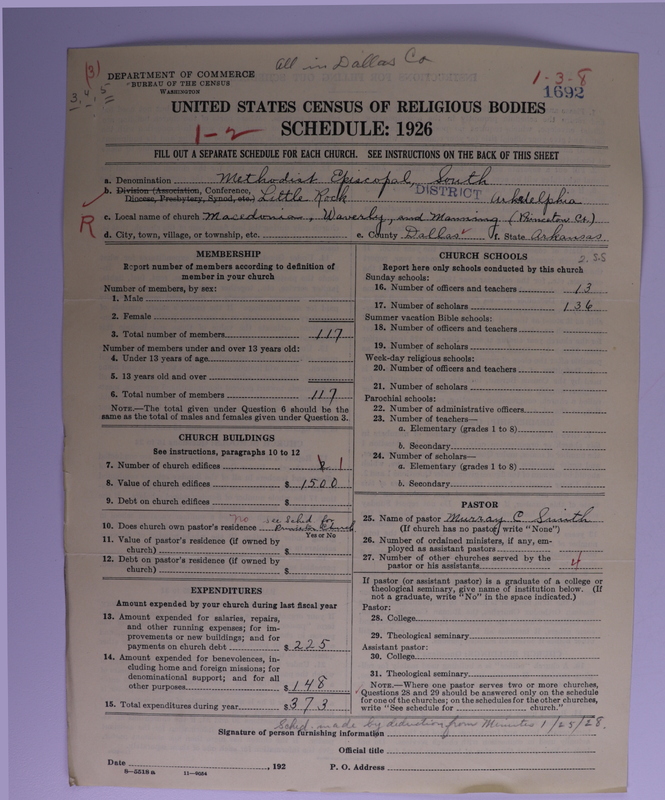 All in Dallas Co
(3)
3, 4, 5
DEPARTMENT OF COMMERCE
BUREAU OF THE CENSUS
WASHINGTON
1-3-8
1692
UNITED STATES CENSUS OF RELIGIOUS BODIES
1-2
SCHEDULE: 1926
FILL OUT A SEPARATE SCHEDULE FOR EACH CHURCH. SEE INSTRUCTIONS ON THE BACK OF THIS SHEET
a. Denomination Methodist Episcopal, South
b. Division (Association, Conference, Diocese, Presbytery, Synod, etc.) Little Rock DISTRICT Arkadelphia
R
c. Local name of church Macedonian, Waverly, and Manning (Princeton Ct.)
d. City, town, village, or township, etc. e. County Dallas f. State Arkansas
MEMBERSHIP
Report number of members according to definition of
member in your church
Number of members, by sex:
1. Male
2. Female
3. Total number of members 117
Number of members under and over 13 years old:
4. Under 13 years of age
5. 13 years old and over
6. Total number of members 117
NOTE.—The total given under Question 6 should be the
same as the total of males and females given under Question 3.
CHURCH BUILDINGS
See instructions, paragraphs 10 to 12
7. Number of church edifices 1
8. Value of church edifices $ 1500
9. Debt on church edifices $
no see Sched for
10. Does church own pastor's residence Princeton Church
Yes or No
11. Value of pastor's residence (if owned by
church) $
12. Debt on pastor's residence (if owned by
church) $
EXPENDITURES
Amount expended by your church during last fiscal year
13. Amount expended for salaries, repairs,
and other running expenses; for im-
provements or new buildings; and for
payments on church debt $ 225
14. Amount expended for benevolences, in-
cluding home and foreign missions; for
denominational support; and for all
other purposes $ 148
15. Total expenditures during year $ 373
2 S.S
CHURCH SCHOOLS
Report here only schools conducted by this church
Sunday schools:
16. Number of officers and teachers 13
17. Number of scholars 136
Summer vacation Bible schools:
18. Number of officers and teachers
19. Number of scholars
Week-day religious schools:
20. Number of officers and teachers
21. Number of scholars
Parochial schools:
22. Number of administrative officers
23. Number of teachers—
a. Elementary (grades 1 to 8)
b. Secondary
24. Number of scholars—
a. Elementary (grades 1 to 8)
b. Secondary
PASTOR
25. Name of pastor Murray C Smith
(If church has no pastor, write "None")
26. Number of ordained ministers, if any, em-
ployed as assistant pastors
27. Number of other churches served by the
pastor or his assistants 4
If pastor (or assistant pastor) is a graduate of a college or
theological seminary, give name of institution below. (If
not a graduate, write "No" in the space indicated.)
Pastor:
28. College
29. Theological seminary
Assistant pastor:
30. College
31. Theological seminary
NOTE.—Where one pastor serves two or more churches,
Questions 28 and 29 should be answered only on the schedule
for one of the churches; on the schedules for the other churches,
write "See schedule for church."
Sched. made by deduction from Minutes 1/25/28.
Signature of person furnishing information
Official title
Date , 192 P. O. Address
8-5518a 11-9034